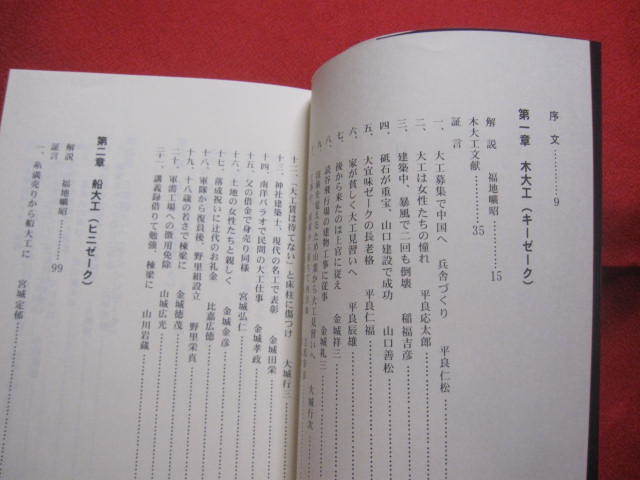 序文……………9
第一章 木大工（キーゼーク）
解説 福地曠昭……………15
木大工文献……………35
証言
一、大工募集で中国へ 兵舎づくり 平良仁松
二、大工は女性たちの憧れ 平良応太郎
三、建築中、暴風で二回も倒壊 稲福吉彦
四、砥石が重宝、山口建設で成功 山口善松
五、大宜味ゼークの長老格 平良仁福
六、家が貧しく大工見習いへ 平良辰雄
七、後から来たのは上官に従え 金城祥三
八、読谷飛行場の建物工事に従事 金城礼三
九、 大工見習いへ 大城行次
十二、「大工賃は待てない」と床柱に傷つけ 大城行三
十三、神社建築士、現代の名工で表彰 金城田栄
十四、南洋パラオで民間の大工仕事 金城孝政
十五、父の借金で身売り同様 宮城弘仁
十六、土地の女性たちと親しく 金城金彦
十七、落成祝いに辻代のお礼金 比嘉広徳
十八、軍隊から復員後、野里組設立 野里栄真
十九、十八歳の若さで棟梁に 金城徳茂
二十、軍需工場への徴用免除 山城広光
二十一、講義録借りて勉強、棟梁に 山川岩蔵
第二章 船大工（ヒニゼーク）
解説 福地曠昭……………99
証言
一、糸満売りから船大工に 宮城定郁